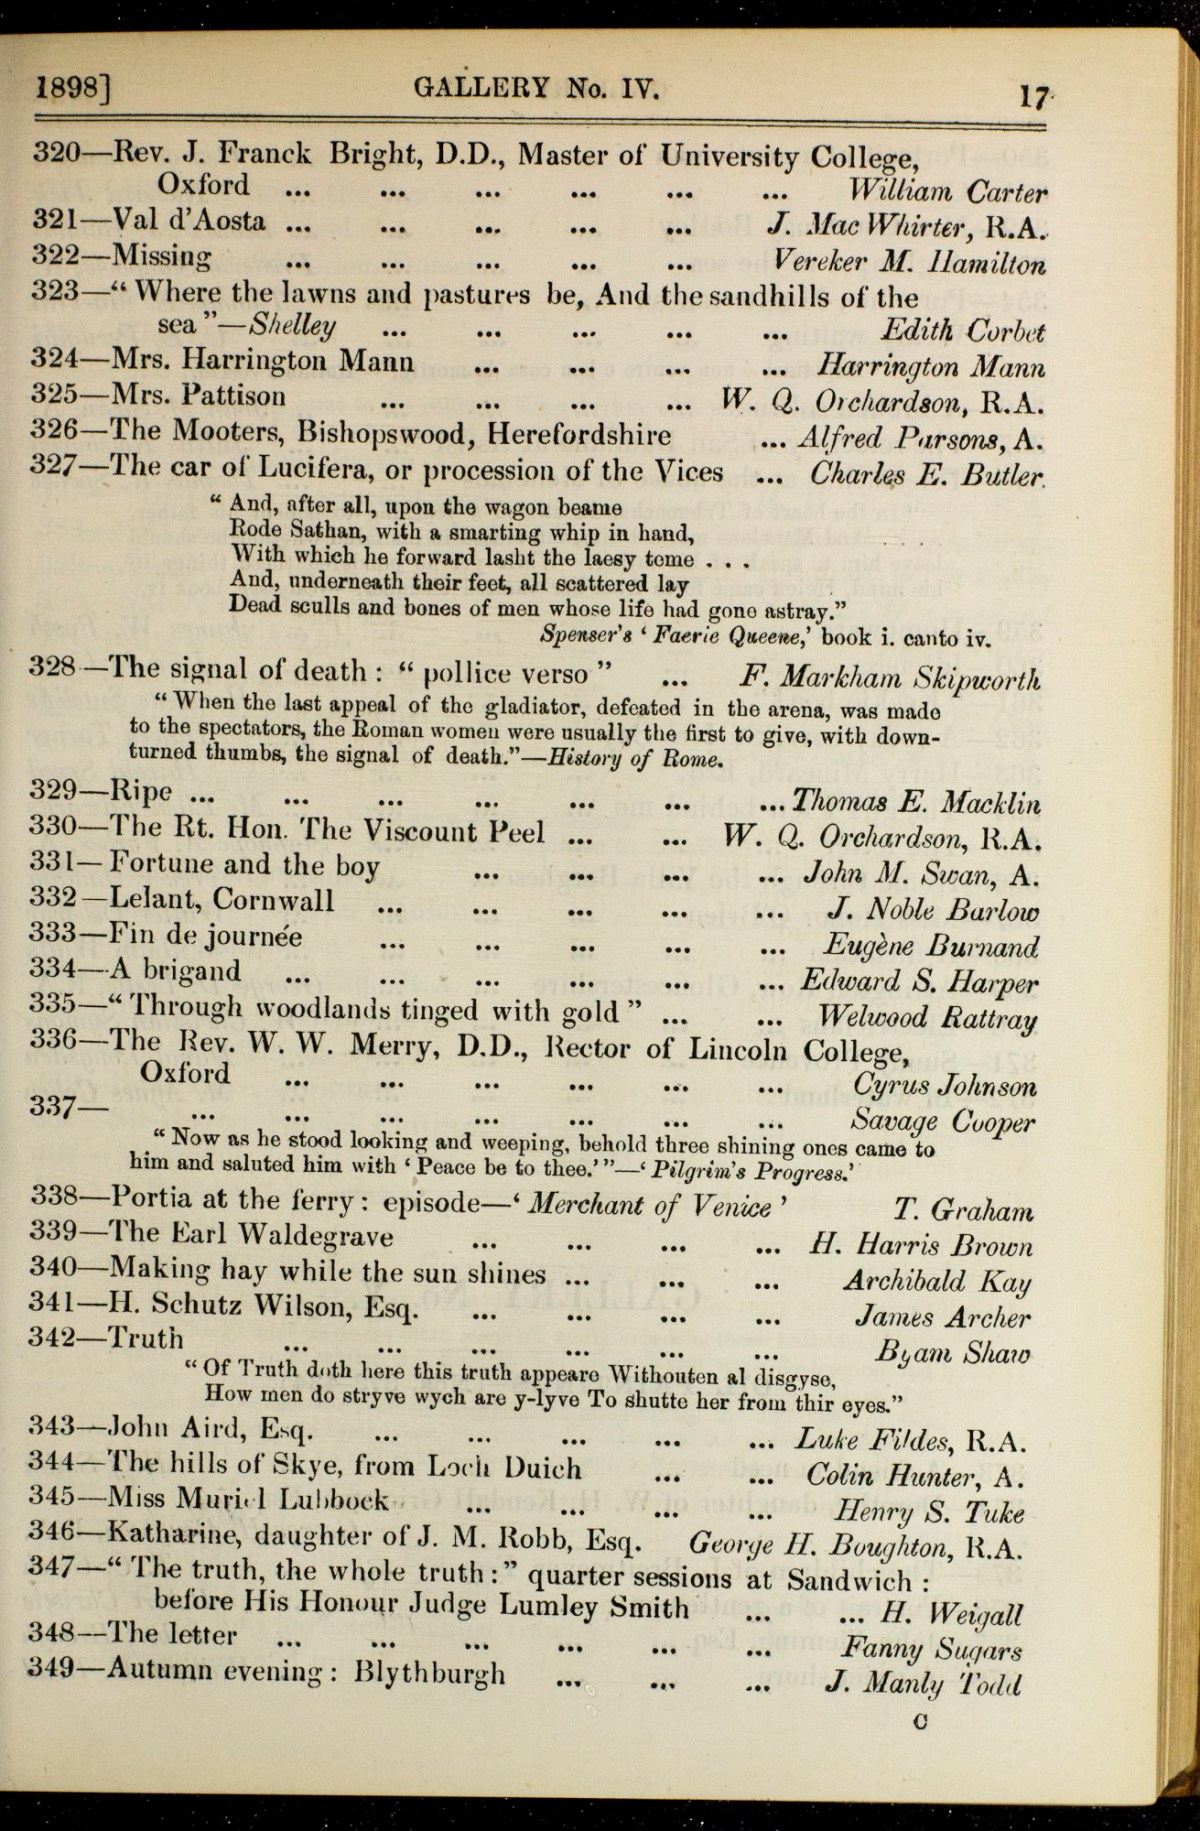 1898] GALLERY No. IV. 17
320—Rev. J. Franck Bright, D.D., Master of University College,
Oxford ... ... ... ... ... ... William Carter
321—Val d'Aosta ... ... ... ... ... J. Mac Whirter, R.A.
322—Missing ... ... ... ... ... Vereker M. Hamilton
323—“Where the lawns and pastures be, And the sandhills of the
sea”—Shelley ... ... ... ... ... Edith Corbet
324—Mrs. Harrington Mann ... ... ... ... Harrington Mann
325—Mrs. Pattison ... ... ... ... W. Q. Orchardson, R.A.
326—The Mooters, Bishopswood, Herefordshire ... Alfred Parsons, A.
327—The car of Lucifera, or procession of the Vices ... Charles E. Butler.
“And, after all, upon the wagon beame
Rode Sathan, with a smarting whip in hand,
With which he forward lasht the laesy teme . . .
And, underneath their feet, all scattered lay
Dead sculls and bones of men whose life had gone astray.”
Spenser's ‘Faerie Queene,’ book i. canto iv.
328—The signal of death: “pollice verso” ... F. Markham Skipworth
“When the last appeal of the gladiator, defeated in the arena, was made
to the spectators, the Roman women were usually the first to give, with down-
turned thumbs, the signal of death.”—History of Rome.
329—Ripe ... ... ... ... ... ... ... Thomas E. Macklin
330—The Rt. Hon. The Viscount Peel ... ... W. Q. Orchardson, R.A.
331—Fortune and the boy ... ... ... ... John M. Swan, A.
332—Lelant, Cornwall ... ... ... ... ... J. Noble Barlow
333—Fin de journée ... ... ... ... ... Eugène Burnand
334—A brigand ... ... ... ... ... ... Edward S. Harper
335—“Through woodlands tinged with gold” ... ... Welwood Rattray
336—The Rev. W. W. Merry, D.D., Rector of Lincoln College,
Oxford ... ... ... ... ... ... Cyrus Johnson
337— ... ... ... ... ... ... ... Savage Cooper
“Now as he stood looking and weeping, behold three shining ones came to
him and saluted him with ‘Peace be to thee.’”—‘Pilgrim's Progress.’
338—Portia at the ferry: episode—‘Merchant of Venice’ T. Graham
339—The Earl Waldegrave ... ... ... ... H. Harris Brown
340—Making hay while the sun shines ... ... ... Archibald Kay
341—H. Schutz Wilson, Esq. ... ... ... ... James Archer
342—Truth ... ... ... ... ... ... Byam Shaw
“Of Truth doth here this truth appeare Withouten al disgyse,
How men do stryve wych are y-lyve To shutte her from thir eyes.”
343—John Aird, Esq. ... ... ... ... ... Luke Fildes, R.A.
344—The hills of Skye, from Loch Duich ... ... Colin Hunter, A.
345—Miss Muriel Lubbock ... ... ... ... Henry S. Tuke
346—Katharine, daughter of J. M. Robb, Esq. George H. Boughton, R.A.
347—“The truth, the whole truth:” quarter sessions at Sandwich:
before His Honour Judge Lumley Smith ... ... H. Weigall
348—The letter ... ... ... ... ... ... Fanny Sugars
349—Autumn evening: Blythburgh ... ... ... J. Manly Todd
C